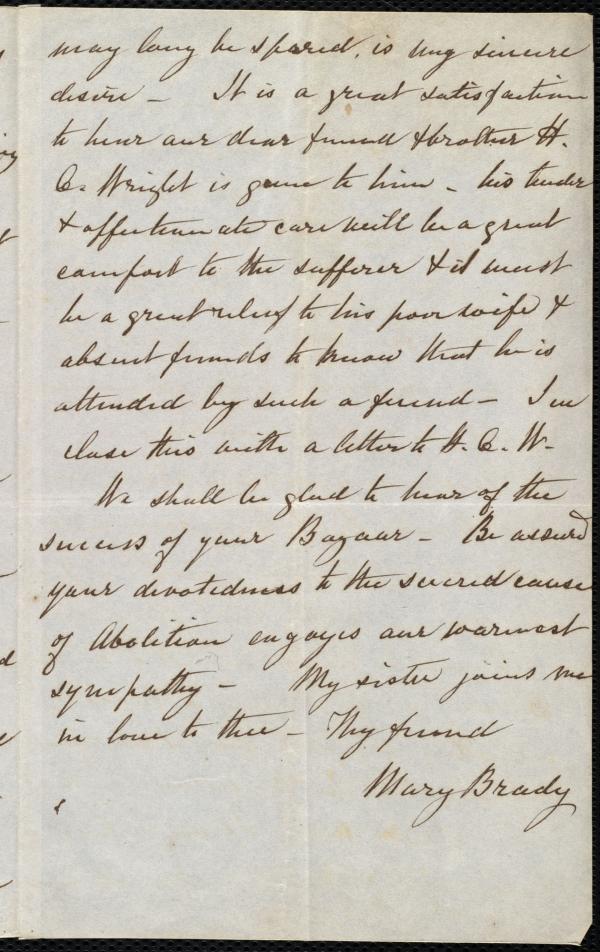 may long be spared, is my sincere
desire - It is a great satisfaction
to hear our dear friend & brother H.
C. Wright is gone to him - his tender
& affectionate care will be a great
comfort to the sufferer & it must
be a great relief to his poor wife &
absent friends to know that he is
attended by such a friend - I en
close this with a letter to H. C. W-
We shall be glad to hear of the
success of your Bazaar - Be assured
your devotedness to the sacred cause
of Abolition engages our warmest
sympathy - My sister joins me
in love to thee - Thy friend
Mary Brady